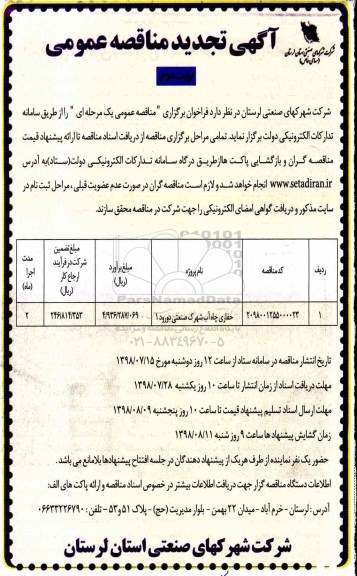 آگهی تجدید مناقصه عمومی
شرکت شهرکهای صنعتی استان لرستان
(سهامی خاص)
نوبت دوم
شرکت شهرکهای صنعتی لرستان در نظر دارد فراخوان برگزاری "مناقصه عمومی یک مرحله ای" را از طریق سامانه
تدارکات الکترونیکی دولت برگزار نماید. تمامی مراحل برگزاری مناقصه از دریافت اسناد مناقصه تا ارائه پیشنهاد قیمت
مناقصه گران و بازگشایی پاکت ها از طریق درگاه سامانه تدارکات الکترونیکی دولت (ستاد) به آدرس
www.setadiran.ir انجام خواهد شد و لازم است مناقصه گران در صورت عدم عضویت قبلی، مراحل ثبت نام در
سایت مذکور و دریافت گواهی امضای الکترونیکی را جهت شرکت در مناقصه محقق سازند.
ردیف کدمناقصه نام پروژه مبلغ برآورد (ریال) مبلغ تضمین شرکت در فرآیند ارجاع کار (ریال) مدت اجرا (ماه)
۱ ۲۰۹۸۰۰۱۲۵۵۰۰۰۰۲۳ حفاری چاه آب شهرک صنعتی دورود۱ ۴/۹۳۶/۲۸۷/۰۶۹ ۲۴۶/۸۱۴/۳۵۳ ۲
ParsNamadData
۰۲۱-۸۸۳۴۹۶۷۰-۵
تاریخ انتشار مناقصه در سامانه ستاد از ساعت ۱۲ روز دوشنبه مورخ ۱۳۹۸/۰۷/۱۵
مهلت دریافت اسناد از زمان انتشار تا ساعت ۱۰ روز یکشنبه ۱۳۹۸/۰۷/۲۸
مهلت ارسال اسناد تسلیم پیشنهاد قیمت تا ساعت ۱۰ روز پنجشنبه ۱۳۹۸/۰۸/۰۹
زمان گشایش پیشنهادها ساعت ۹ روز شنبه ۱۳۹۸/۰۸/۱۱
حضور یک نفر نماینده از طرف هریک از پیشنهاد دهندگان در جلسه افتتاح پیشنهادها بلامانع می باشد.
اطلاعات دستگاه مناقصه گزار جهت دریافت اطلاعات بیشتر در خصوص اسناد مناقصه و ارائه پاکت های الف:
آدرس: لرستان - خرم آباد - میدان ۲۲ بهمن - بلوار مدیریت (حج) - پلاک ۵۱ و ۵۳ - تلفن: ۰۶۶۳۳۲۲۶۷۹۰
شرکت شهرکهای صنعتی استان لرستان